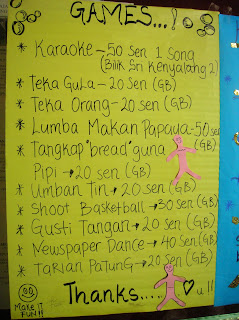 GAMES...!
* Karaoke - 50 sen 1 song
(Bilik Sri Kenyalang 2)
* Teka Gula - 20 sen (GB)
* Teka Orang - 20 sen (GB)
* Lumba Makan Papaya - 50 sen (GB)
* Tangkap "bread" guna
Pipi → 20 sen (GB)
* Umban Tin → 20 sen (GB)
* Shoot Basketball → 30 sen (GB)
* Gusti Tangan → 20 sen (GB)
* Newspaper Dance → 40 sen (GB)
* Tarian Patung → 20 sen (GB)
Thanks.... ♡ u!!
Make it
FUN!!